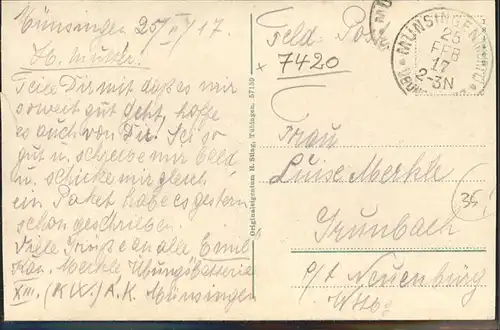 Münsingen 25/II/17.
Lb. Mutter.
Teile Dir mit daß es mir
soweit gut geht, hoffe
es auch von Dir. Sei so
gut u. schreibe mir bald
u. schicke mir gleich
ein Paket habe es gestern
schon geschrieben.
Viele Grüsse an alle Emil
Kan. Merkle Übungsbatterie
XIII. (K.W.) A.K. Münsingen
Originaleigentum H. Sting, Tübingen. 57159
Feld Post
7420
MÜNSINGEN
25
FEB
17
2-3N
Frau
Luise Merkle
Grunbach
p/t Neuenbürg
Wttbg
35.